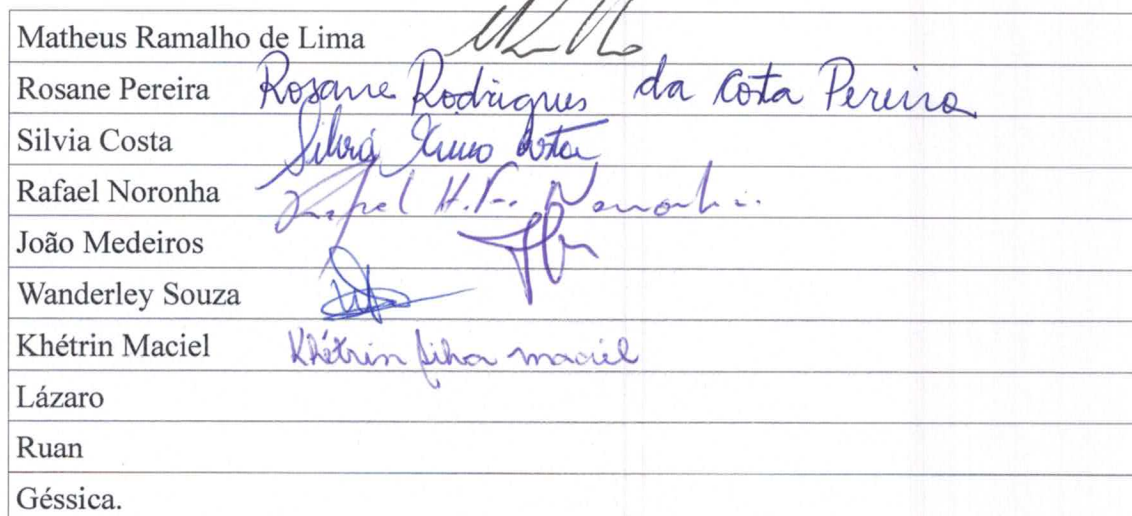 Matheus Ramalho de Lima
Rosane Pereira Rosane Rodrigues da Costa Pereira
Silvia Costa Silvia Costa
Rafael Noronha Rafael H. F. Noronha
João Medeiros
Wanderley Souza
Khétrin Maciel Khétrin Silva maciel
Lázaro
Ruan
Géssica.